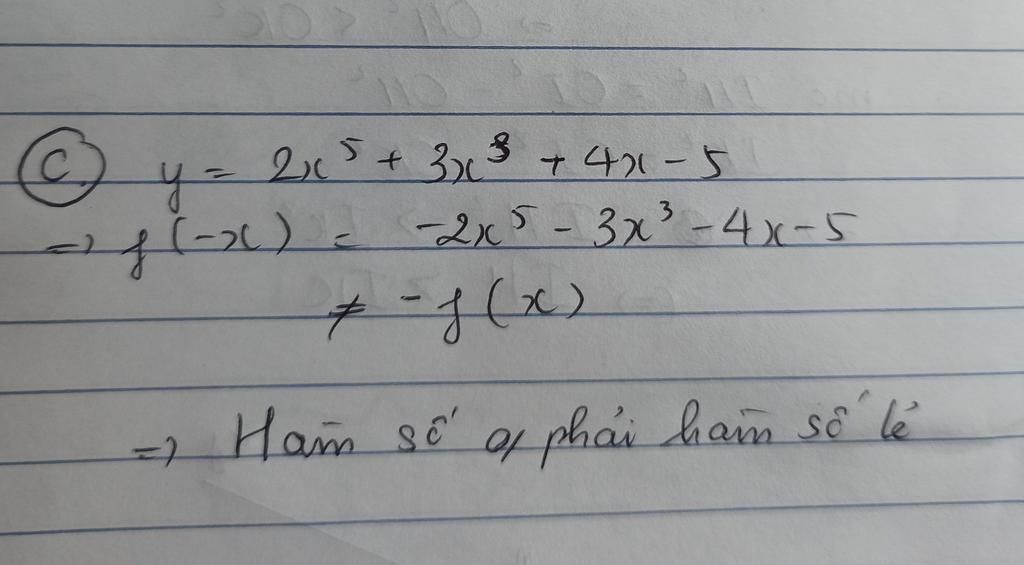 C. y = 2x⁵ + 3x³ + 4x - 5
=> f(-x) = -2x⁵ - 3x³ - 4x - 5
≠ -f(x)
=> Hàm số 0/ phải hàm số lẻ